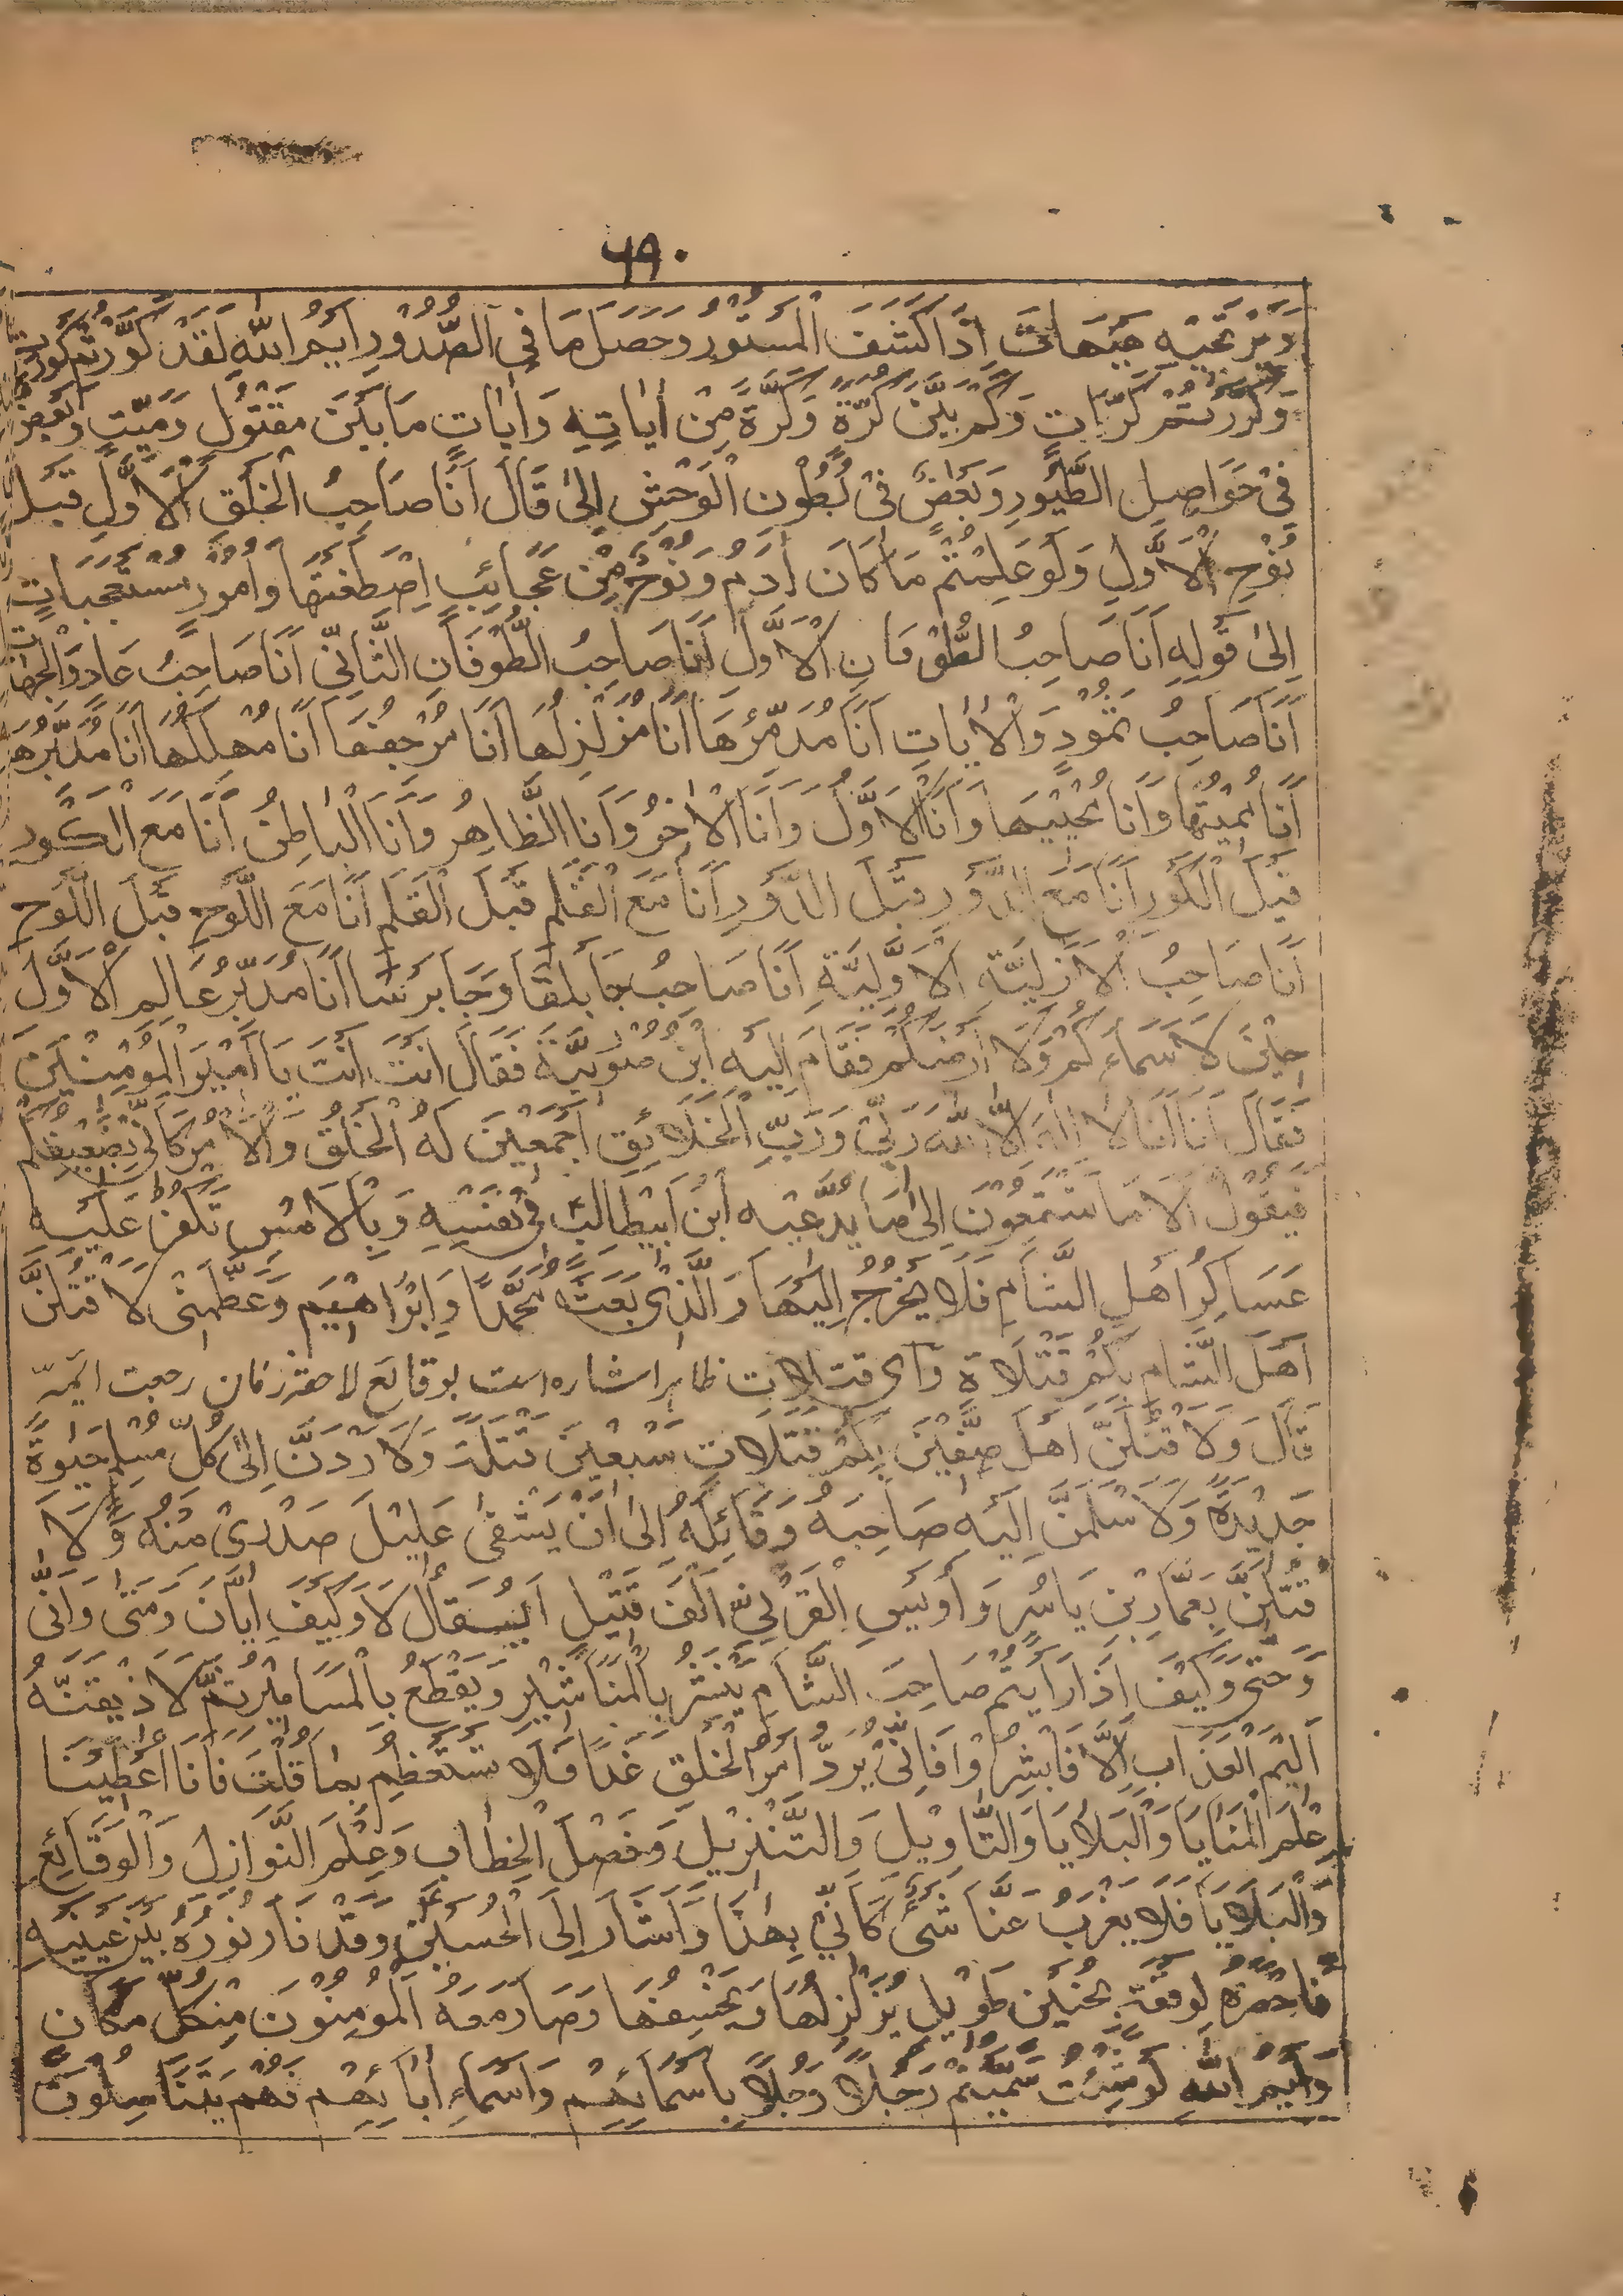 ۶۹۰
وَيَرْتَجيْهِ هَيْهَاتَ اِذَا كُشِفَ الْمَسْتُوْرُ وَحَصَلَ مَا فِى الصُّدُوْرِ اَيْمُ اللهِ لَقَدْ كُوِّرْتُمْ كَوْرَاتٍ
وَكُرِّرْتُمْ كَرَّاتٍ وَكَمْ بَيْنَ كَرَّةٍ وَكَرَّةٍ مِنْ اٰيَاتِهٖ وَاٰيَاتٍ مَا بَيْنَ مَقْتُوْلٍ وَمَيِّتٍ وَبَعْضٌ
فِىْ حَوَاصِلِ الطُّيُوْرِ وَبَعْضٌ فِىْ بُطُوْنِ الْوَحْشِ اِلىٰ قَالَ اَنَا صَاحِبُ الْخَلْقِ الْاَوَّلِ قَبْلَ
نُوْحِ الْاَوَّلِ وَلَوْ عَلِمْتُمْ مَا كَانَ اٰدَمُ وَنُوْحٌ مِنْ عَجَائِبَ اِصْطَفَيْتُهَا وَاُمُوْرٍ مُسْتَعْجِبَاتٍ
اِلىٰ قَوْلِهِ اَنَا صَاحِبُ الطُّوْفَانِ الْاَوَّلِ اَنَا صَاحِبُ الطُّوْفَانِ الثَّانِىْ اَنَا صَاحِبُ عَادٍ وَالْجَنَّاتِ
اَنَا صَاحِبُ ثَمُوْدَ وَالْاٰيَاتِ اَنَا مُدَمِّرُهَا اَنَا مُزَلْزِلُهَا اَنَا مُرْجِفُهَا اَنَا مُهْلِكُهَا اَنَا مُدَبِّرُهَا
اَنَا مُمِيْتُهَا وَاَنَا مُحْيِيْهَا وَاَنَا الْاَوَّلُ وَاَنَا الْاٰخِرُ وَاَنَا الظَّاهِرُ وَاَنَا الْبَاطِنُ اَنَا مَعَ الْكَوْرِ
قَبْلَ الْكَوْرِ اَنَا مَعَ الدَّوْرِ قَبْلَ الدَّوْرِ اَنَا مَعَ الْقَلَمِ قَبْلَ الْقَلَمِ اَنَا مَعَ اللَّوْحِ قَبْلَ اللَّوْحِ
اَنَا صَاحِبُ الْاَزَلِيَّةِ الْاَوَّلِيَّةِ اَنَا صَاحِبُ جَابَلْقَا وَجَابَرْسَا اَنَا مُدَبِّرُ عَالَمِ الْاَوَّلِ
حِيْنَ لَا سَمَاءُكُمْ وَلَا اَرْضُكُمْ فَقَامَ اِلَيْهِ ابْنُ صُوَيْرِيَّةَ فَقَالَ اَنْتَ اَنْتَ يَا اَمِيْرَ الْمُؤْمِنِيْنَ
فَقَالَ اَنَا اَنَا لَا اِلٰهَ اِلَّا اللهُ رَبِّىْ وَرَبُّ الْخَلَائِقِ اَجْمَعِيْنَ لَهُ الْخَلْقُ وَالْاَمْرُ كَاَنِّىْ بِضَعِيْفِكُمْ
فَيَقُوْلُ اَلَا مَا تَسْمَعُوْنَ اِلىٰ مَا يَدَّعِيْهِ اِبْنُ اَبِيْطَالِبٍ فِىْ نَفْسِهِ وَبِالْاَمْسِ تَكْفَهِرُّ عَلَيْهِ
عَسَاكِرُ اَهْلِ الشَّامِ فَلَا يَخْرُجُ اِلَيْهَا وَالَّذِىْ بَعَثَ مُحَمَّدًا وَاِبْرَاهِيْمَ وَعَظَمَتِىْ لَاَقْتُلَنَّ
اَهْلَ الشَّامِ بِكُمْ قَتَلَاةٍ وَاَىَّ قتالات ظاہرا اشارہ است بوقائع لاحقہ زمان رجعت ائمہ
قَالَ وَلَاَقْتُلَنَّ اَهْلَ صِفِّيْنَ بِكُمْ قَتَلَاتٍ سَبْعِيْنَ قَتْلَةً وَلَاَرُدَّنَّ اِلىٰ كُلِّ مُسْلِمٍ حَيٰوةً
جَدِيْدَةً وَلَاُسَلِّمَنَّ اِلَيْهِ صَاحِبَهُ وَقَاتِلَهُ اِلىٰ اَنْ يَشْفىٰ عَلِيْلَ صَدْرِىْ مِنْهُ وَلَا
قْتُلَنَّ بِعَمَّارِ بْنِ يَاسِرٍ وَاُوَيْسِ الْقَرَنِىِّ اَلْفَ قَتِيْلٍ اَيُقَالُ لَا وَكَيْفَ اَيَّانَ وَمَتىٰ وَاَنّىٰ
وَحَتّىٰ وَكَيْفَ اِذَا رَاَيْتُمْ صَاحِبَ الشَّامِ يُنْشَرُ بِالْمَنَاشِيْرِ وَيُقْطَعُ بِالْمَسَامِيْرِ ثُمَّ لَاُذِيْقَنَّهُ
اَلِيْمَ الْعَذَابِ اَلَا فَاَبْشِرُوْا فَاِنِّىْ يُرَدُّ اَمْرُ الْخَلْقِ غَدًا فَلَا تَسْتَعْظِمْ بِمَا قُلْتُ فَاَنَا اُعْطِيْنَا
عِلْمَ الْمَنَايَا وَالْبَلَايَا وَالتَّاْوِيْلَ وَالتَّنْزِيْلَ وَفَصْلَ الْخِطَابِ وَعِلْمَ النَّوَازِلِ وَالْوَقَائِعِ
وَالْبَلَايَا فَلَا يَعْزُبُ عَنَّا شَىْءٌ كَاَنِّىْ بِهٰذَا وَاَشَارَ اِلَى الْحُسَيْنِ وَقَدْ نَارَ نُوْرُهُ بَيْنَ عَيْنَيْهِ
فَاَحْضَرَهُ لِوَقْتِهِ بِحُنَيْنٍ طَوِيْلٍ يُزَلْزِلُهَا وَيَخْسِفُهَا وَصَارَ مَعَهُ الْمُؤْمِنُوْنَ مِنْ كُلِّ مَكَانٍ
وَاَيْمُ اللهِ لَوْ شِئْتُ سَمَّيْتُهُمْ رَجُلًا رَجُلًا بِاَسْمَائِهِمْ وَاَسْمَاءِ اٰبَائِهِمْ فَهُمْ يَتَنَاسَلُوْنَ